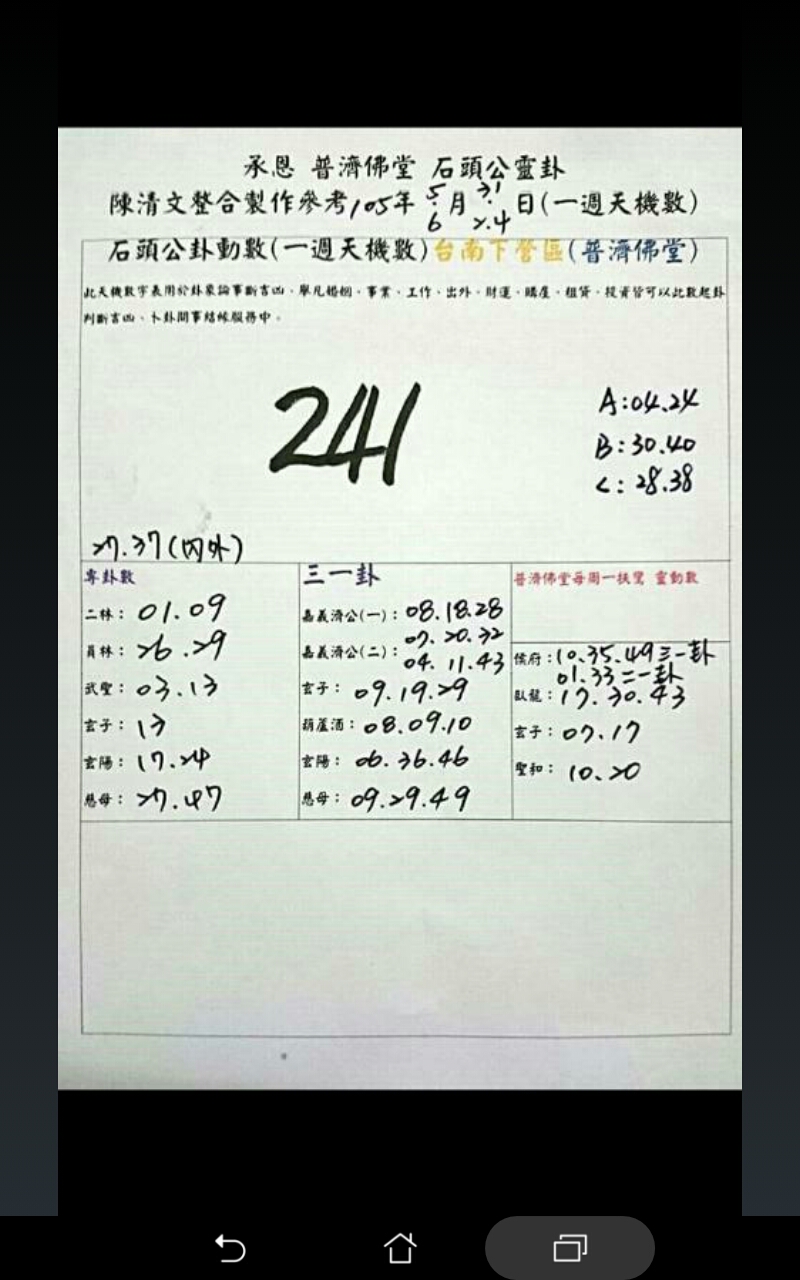 承恩 普濟佛堂 石頭公靈卦
陳清文整合製作參考105年5月31日(一週天機數)
6 2.4
石頭公卦動數(一週天機數)台南下營區(普濟佛堂)
此天機數字表用於卦象論事斷吉凶、舉凡婚姻、事業、工作、出外、財運、購屋、租賃、投資皆可以此數起卦
判斷吉凶、卜卦問事結緣服務中。
241
A:04.24
B:30.40
C:28.38
27.37(內外)
專卦數
二林：01.09
員林：26.29
武聖：03.13
玄子：13
玄陽：17.24
慈母：27.47
三一卦
嘉義濟公(一)：08.18.28
嘉義濟公(二)：07.20.32
04.11.43
玄子：09.19.29
葫蘆酒：08.09.10
玄陽：06.36.46
慈母：09.29.49
普濟佛堂每周一扶鸞 靈動數
侯府：10.35.49三一卦
01.33二一卦
臥龍：17.30.43
玄子：07.17
聖和：10.20